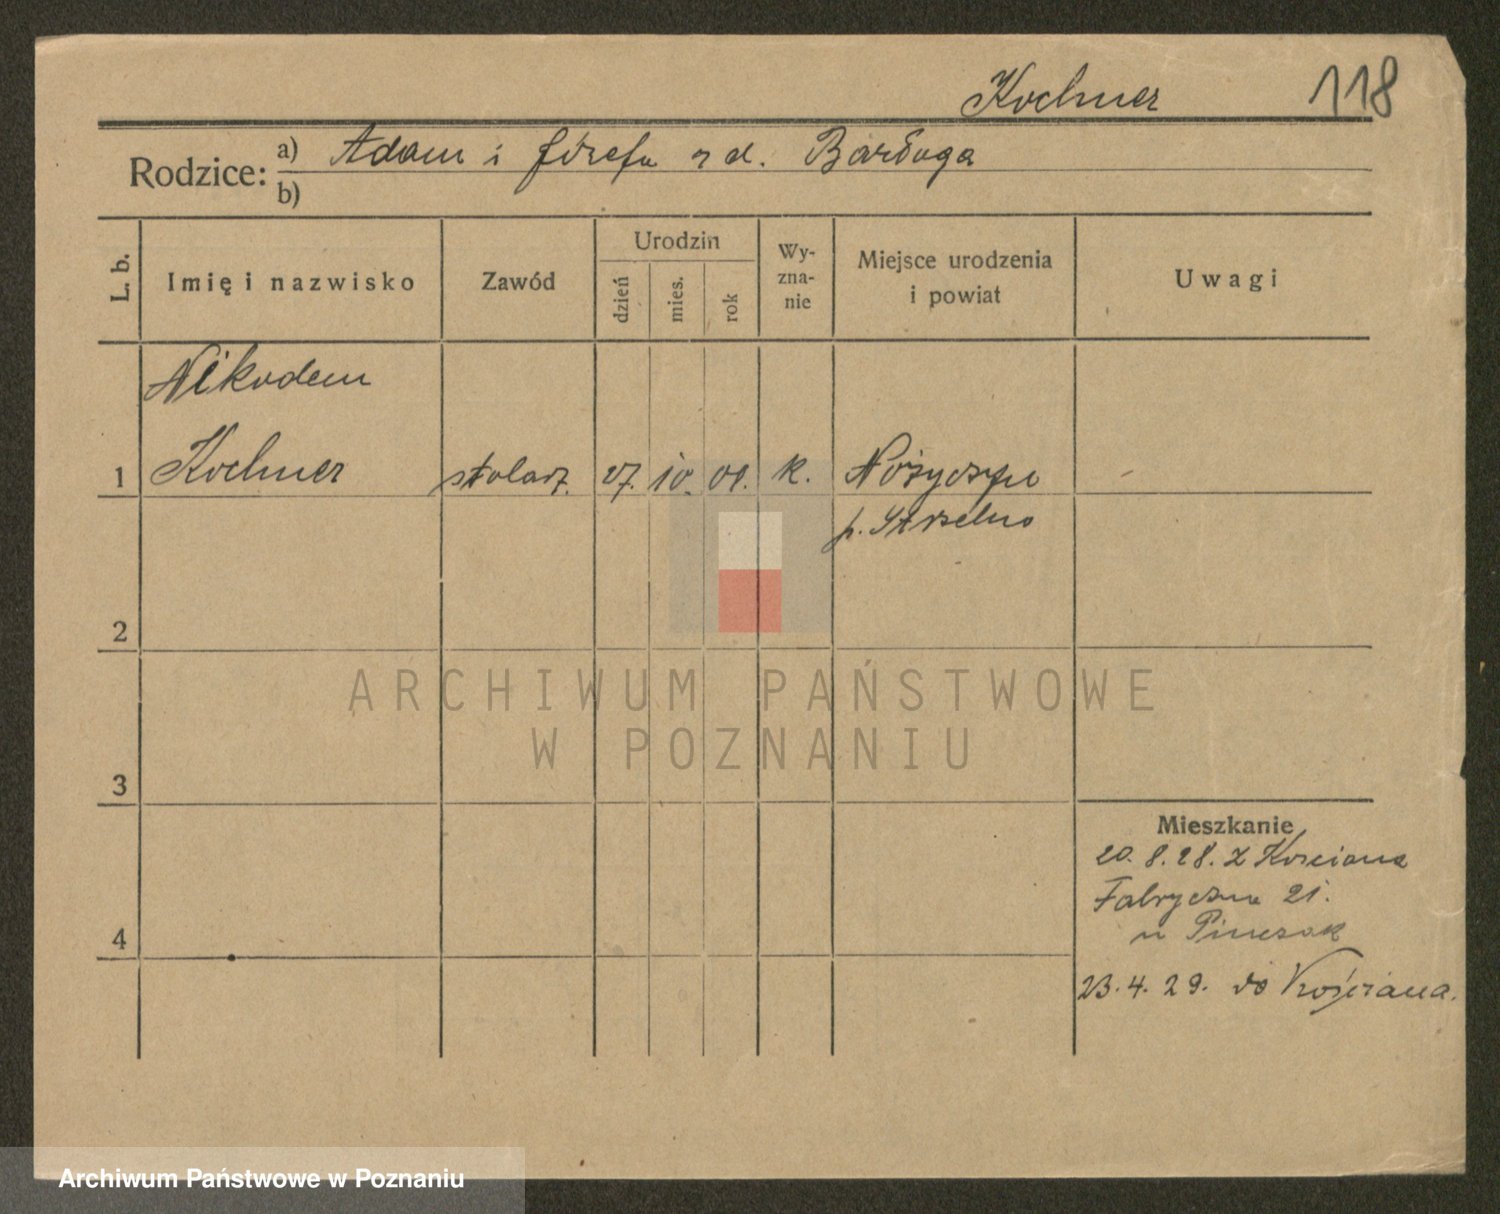 Kochner 118
Rodzice: a) Adam i Józefa z d. Barługa
b)
L. b. Imię i nazwisko Zawód Urodzin dzień mies. rok Wy-zna-nie Miejsce urodzenia i powiat Uwagi
Nikodem
1 Kochner stolarz. 27. 10. 01. k. Nożyczyn
p. Strzelno
2
ARCHIWUM PAŃSTWOWE
W POZNANIU
3
Mieszkanie
20. 8. 28. z Kościana
Fabryczna 21.
4 u
23. 4. 29. do Kościana.
Archiwum Państwowe w Poznaniu